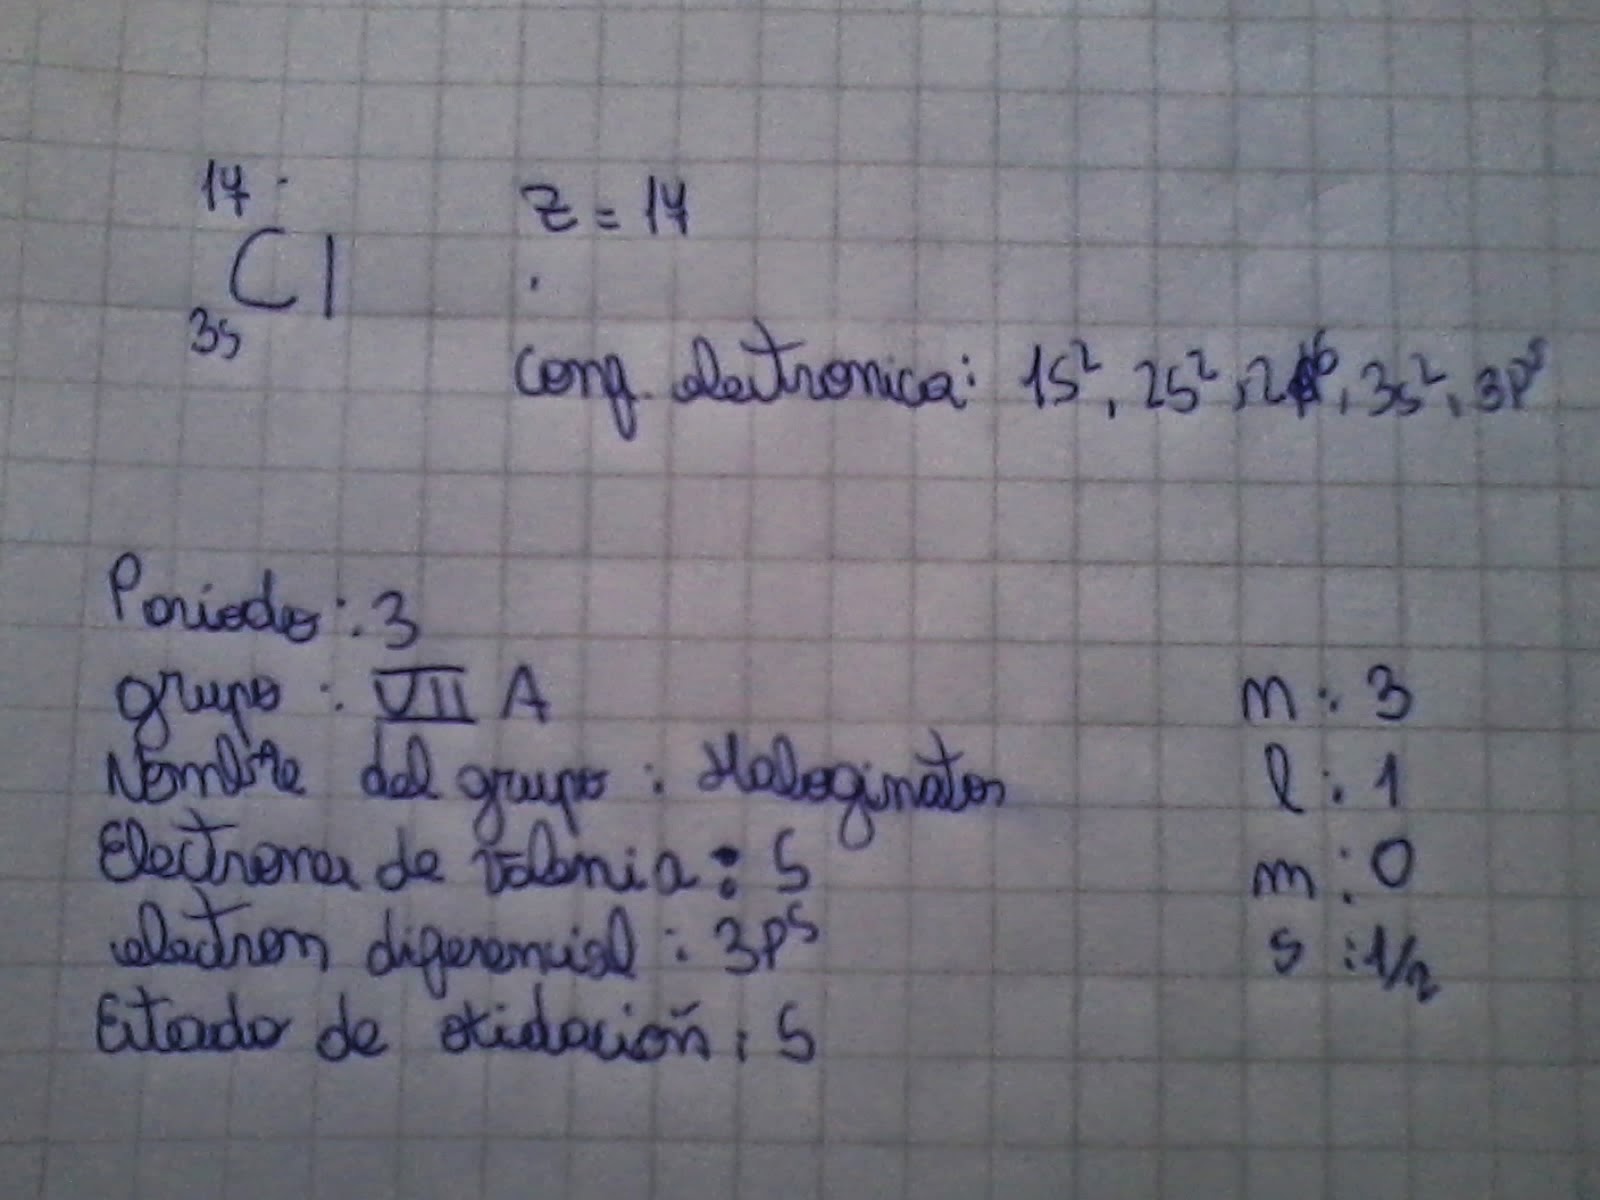 17
Cl
35
Z = 17
Conf. electronica: 1S², 2S², 2p⁶, 3s², 3p⁵
Periodo: 3
grupo: VII A
Nombre del grupo: Haloginatos
Electrones de valenia: 5
electron diferencial: 3p⁵
Estado de oxidación: 5
n: 3
l: 1
m: 0
s: 1/2